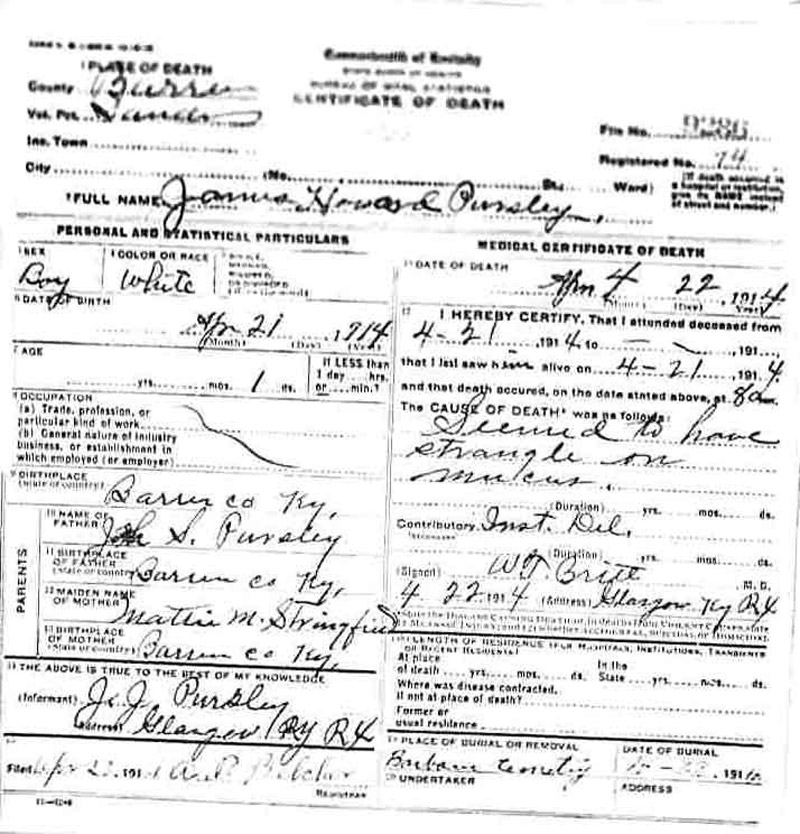 Commonwealth of Kentucky
STATE BOARD OF HEALTH
BUREAU OF VITAL STATISTICS
CERTIFICATE OF DEATH
1 PLACE OF DEATH
County Barren
Vot. Pct.
Inc. Town
City (No. St. Ward)
File No.
Registered No. 74
(If death occurred in
a hospital or institution,
give its NAME instead
of street and number.)
2 FULL NAME James Howard Pursley.
PERSONAL AND STATISTICAL PARTICULARS
3 SEX
Boy
4 COLOR OR RACE
White
5 SINGLE,
MARRIED,
WIDOWED,
OR DIVORCED
6 DATE OF BIRTH
Apr 21 1914
(Month) (Day) (Year)
7 AGE
yrs. mos. 1 ds.
If LESS than
1 day hrs.
or min.?
8 OCCUPATION
(a) Trade, profession, or
particular kind of work
(b) General nature of industry
business, or establishment in
which employed (or employer)
9 BIRTHPLACE
(State or country)
Barren co Ky,
PARENTS
10 NAME OF
FATHER
S. Pursley
11 BIRTHPLACE
OF FATHER
(State or country)
Barren co Ky,
12 MAIDEN NAME
OF MOTHER
Mattie M. Stringfield
13 BIRTHPLACE
OF MOTHER
(State or country)
Barren co Ky,
14 THE ABOVE IS TRUE TO THE BEST OF MY KNOWLEDGE
(Informant) J. J. Pursley
Address Glasgow Ky R4
15
Filed Apr 191
REGISTRAR
MEDICAL CERTIFICATE OF DEATH
16 DATE OF DEATH
Apr 4 22, 1914
(Month) (Day) (Year)
17 I HEREBY CERTIFY, That I attended deceased from
4-21 1914 to — 191
that I last saw him alive on 4-21, 1914
and that death occured, on the date stated above, at 8a m.
The CAUSE OF DEATH* was as follows:
Seemed to have
strangle on
mucus.
(Duration) yrs. mos. ds.
Contributory Inst. Del.
(Duration) yrs. mos. ds.
(Signed) W. J. Britt M. D.
4 22 1914 (Address) Glasgow Ky R4
18 LENGTH OF RESIDENCE (FOR HOSPITALS, INSTITUTIONS, TRANSIENTS
OR RECENT RESIDENTS)
At place
of death yrs. mos. ds.
In the
State yrs. mos. ds.
Where was disease contracted,
If not at place of death?
Former or
usual residence
19 PLACE OF BURIAL OR REMOVAL
Cemetery
DATE OF BURIAL
191
20 UNDERTAKER
ADDRESS